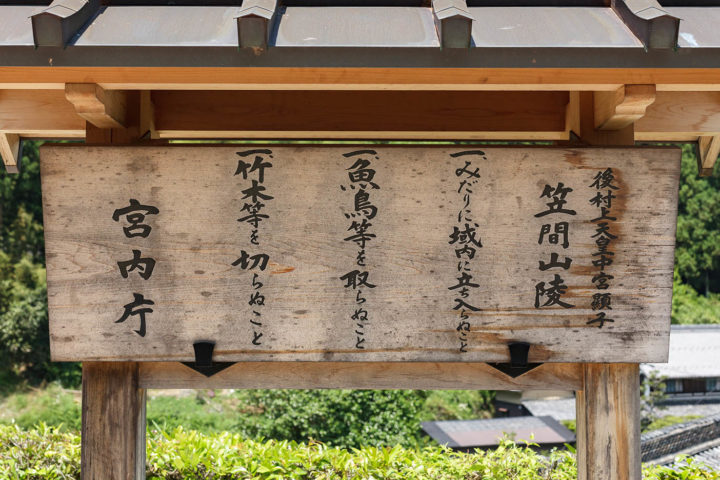 後村上天皇中宮顕子
笠間山陵
一、みだりに域内に立ち入らぬこと
一、魚鳥等を取らぬこと
一、竹木等を切らぬこと
宮内庁